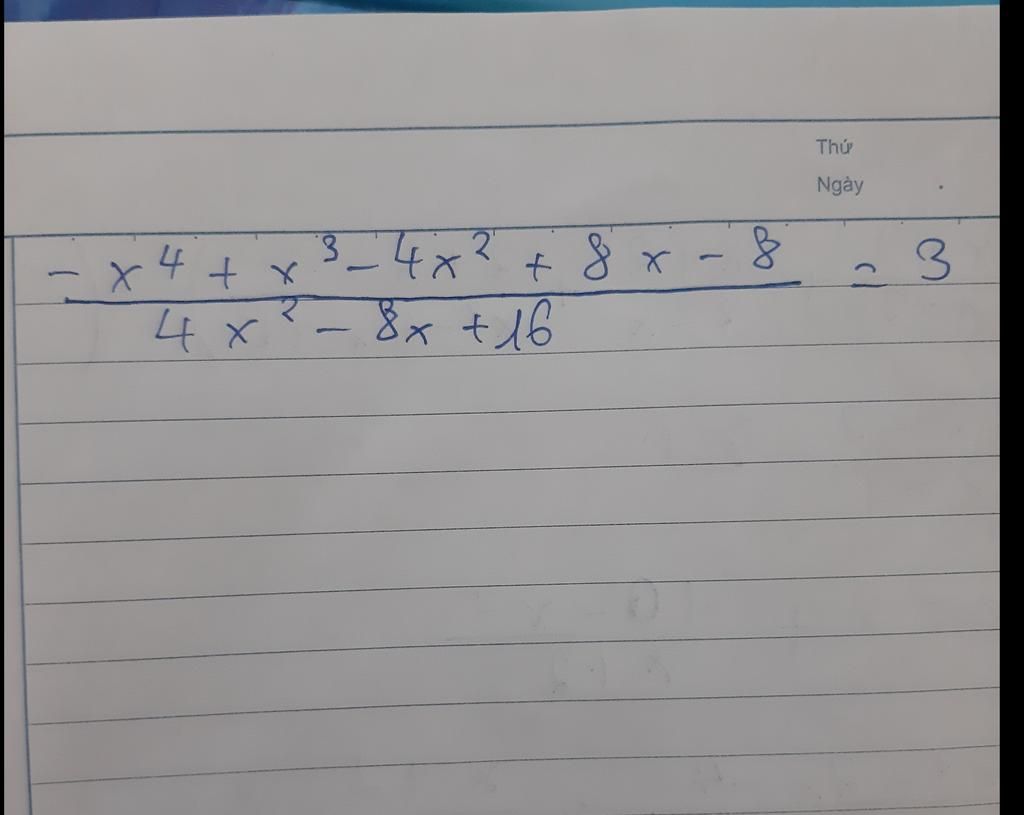 Thứ
Ngày
- x⁴ + x³ - 4x² + 8x - 8 = 3
4x² - 8x + 16